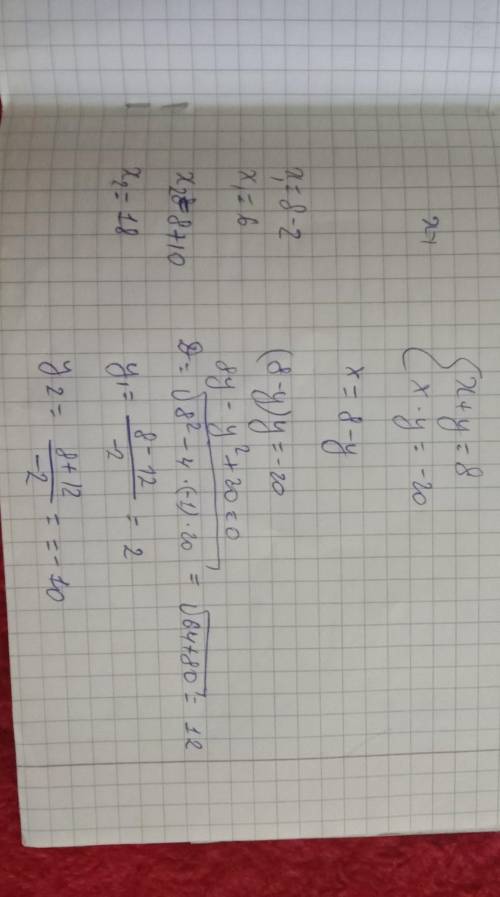 { x + y = 8
x · y = -20
x = 8 - y
(8 - y) y = -20
8y - y² + 20 = 0
D = √8² - 4 · (-1) · 20 = √64 + 80 = 12
y₁ = 8 - 12 / -2 = 2
y₂ = 8 + 12 / -2 = = -10
x₁ = 8 - 2
x₁ = 6
x₂ = 8 + 10
x₂ = 18